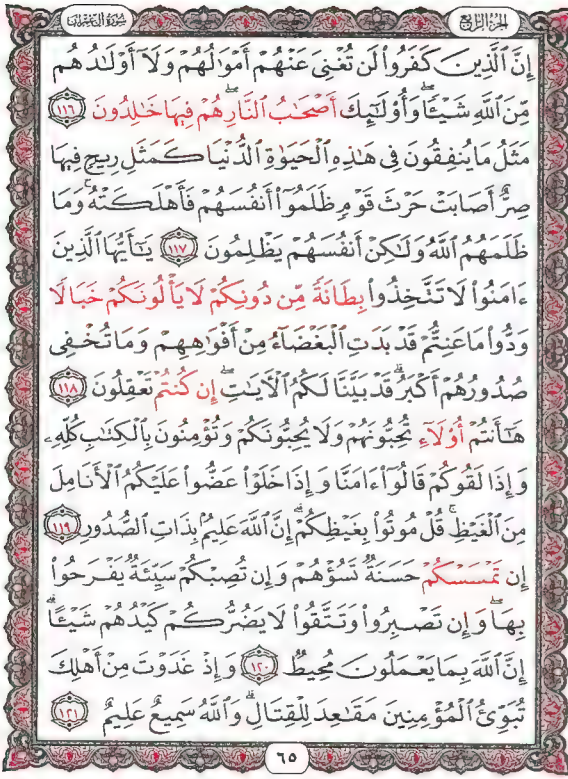 الجزء الرابع
سورة آل عمران
إِنَّ ٱلَّذِينَ كَفَرُوا۟ لَن تُغْنِىَ عَنْهُمْ أَمْوَٰلُهُمْ وَلَآ أَوْلَٰدُهُم
مِّنَ ٱللَّهِ شَيْـًٔا ۖ وَأُو۟لَٰٓئِكَ أَصْحَٰبُ ٱلنَّارِ ۖ هُمْ فِيهَا خَٰلِدُونَ ١١٦
مَثَلُ مَا يُنفِقُونَ فِى هَٰذِهِ ٱلْحَيَوٰةِ ٱلدُّنْيَا كَمَثَلِ رِيحٍ فِيهَا
صِرٌّ أَصَابَتْ حَرْثَ قَوْمٍ ظَلَمُوٓا۟ أَنفُسَهُمْ فَأَهْلَكَتْهُ ۚ وَمَا
ظَلَمَهُمُ ٱللَّهُ وَلَٰكِنْ أَنفُسَهُمْ يَظْلِمُونَ ١١٧ يَٰٓأَيُّهَا ٱلَّذِينَ
ءَامَنُوا۟ لَا تَتَّخِذُوا۟ بِطَانَةً مِّن دُونِكُمْ لَا يَأْلُونَكُمْ خَبَالًا
وَدُّوا۟ مَا عَنِتُّمْ قَدْ بَدَتِ ٱلْبَغْضَآءُ مِنْ أَفْوَٰهِهِمْ وَمَا تُخْفِى
صُدُورُهُمْ أَكْبَرُ ۚ قَدْ بَيَّنَّا لَكُمُ ٱلْـَٔايَٰتِ ۖ إِن كُنتُمْ تَعْقِلُونَ ١١٨
هَٰٓأَنتُمْ أُو۟لَآءِ تُحِبُّونَهُمْ وَلَا يُحِبُّونَكُمْ وَتُؤْمِنُونَ بِٱلْكِتَٰبِ كُلِّهِۦ
وَإِذَا لَقُوكُمْ قَالُوٓا۟ ءَامَنَّا وَإِذَا خَلَوْا۟ عَضُّوا۟ عَلَيْكُمُ ٱلْأَنَامِلَ
مِنَ ٱلْغَيْظِ ۚ قُلْ مُوتُوا۟ بِغَيْظِكُمْ ۗ إِنَّ ٱللَّهَ عَلِيمٌۢ بِذَاتِ ٱلصُّدُورِ ١١٩
إِن تَمْسَسْكُمْ حَسَنَةٌ تَسُؤْهُمْ وَإِن تُصِبْكُمْ سَيِّئَةٌ يَفْرَحُوا۟
بِهَا ۖ وَإِن تَصْبِرُوا۟ وَتَتَّقُوا۟ لَا يَضُرُّكُمْ كَيْدُهُمْ شَيْـًٔا ۗ
إِنَّ ٱللَّهَ بِمَا يَعْمَلُونَ مُحِيطٌ ١٢٠ وَإِذْ غَدَوْتَ مِنْ أَهْلِكَ
تُبَوِّئُ ٱلْمُؤْمِنِينَ مَقَٰعِدَ لِلْقِتَالِ ۗ وَٱللَّهُ سَمِيعٌ عَلِيمٌ ١٢١
٦٥